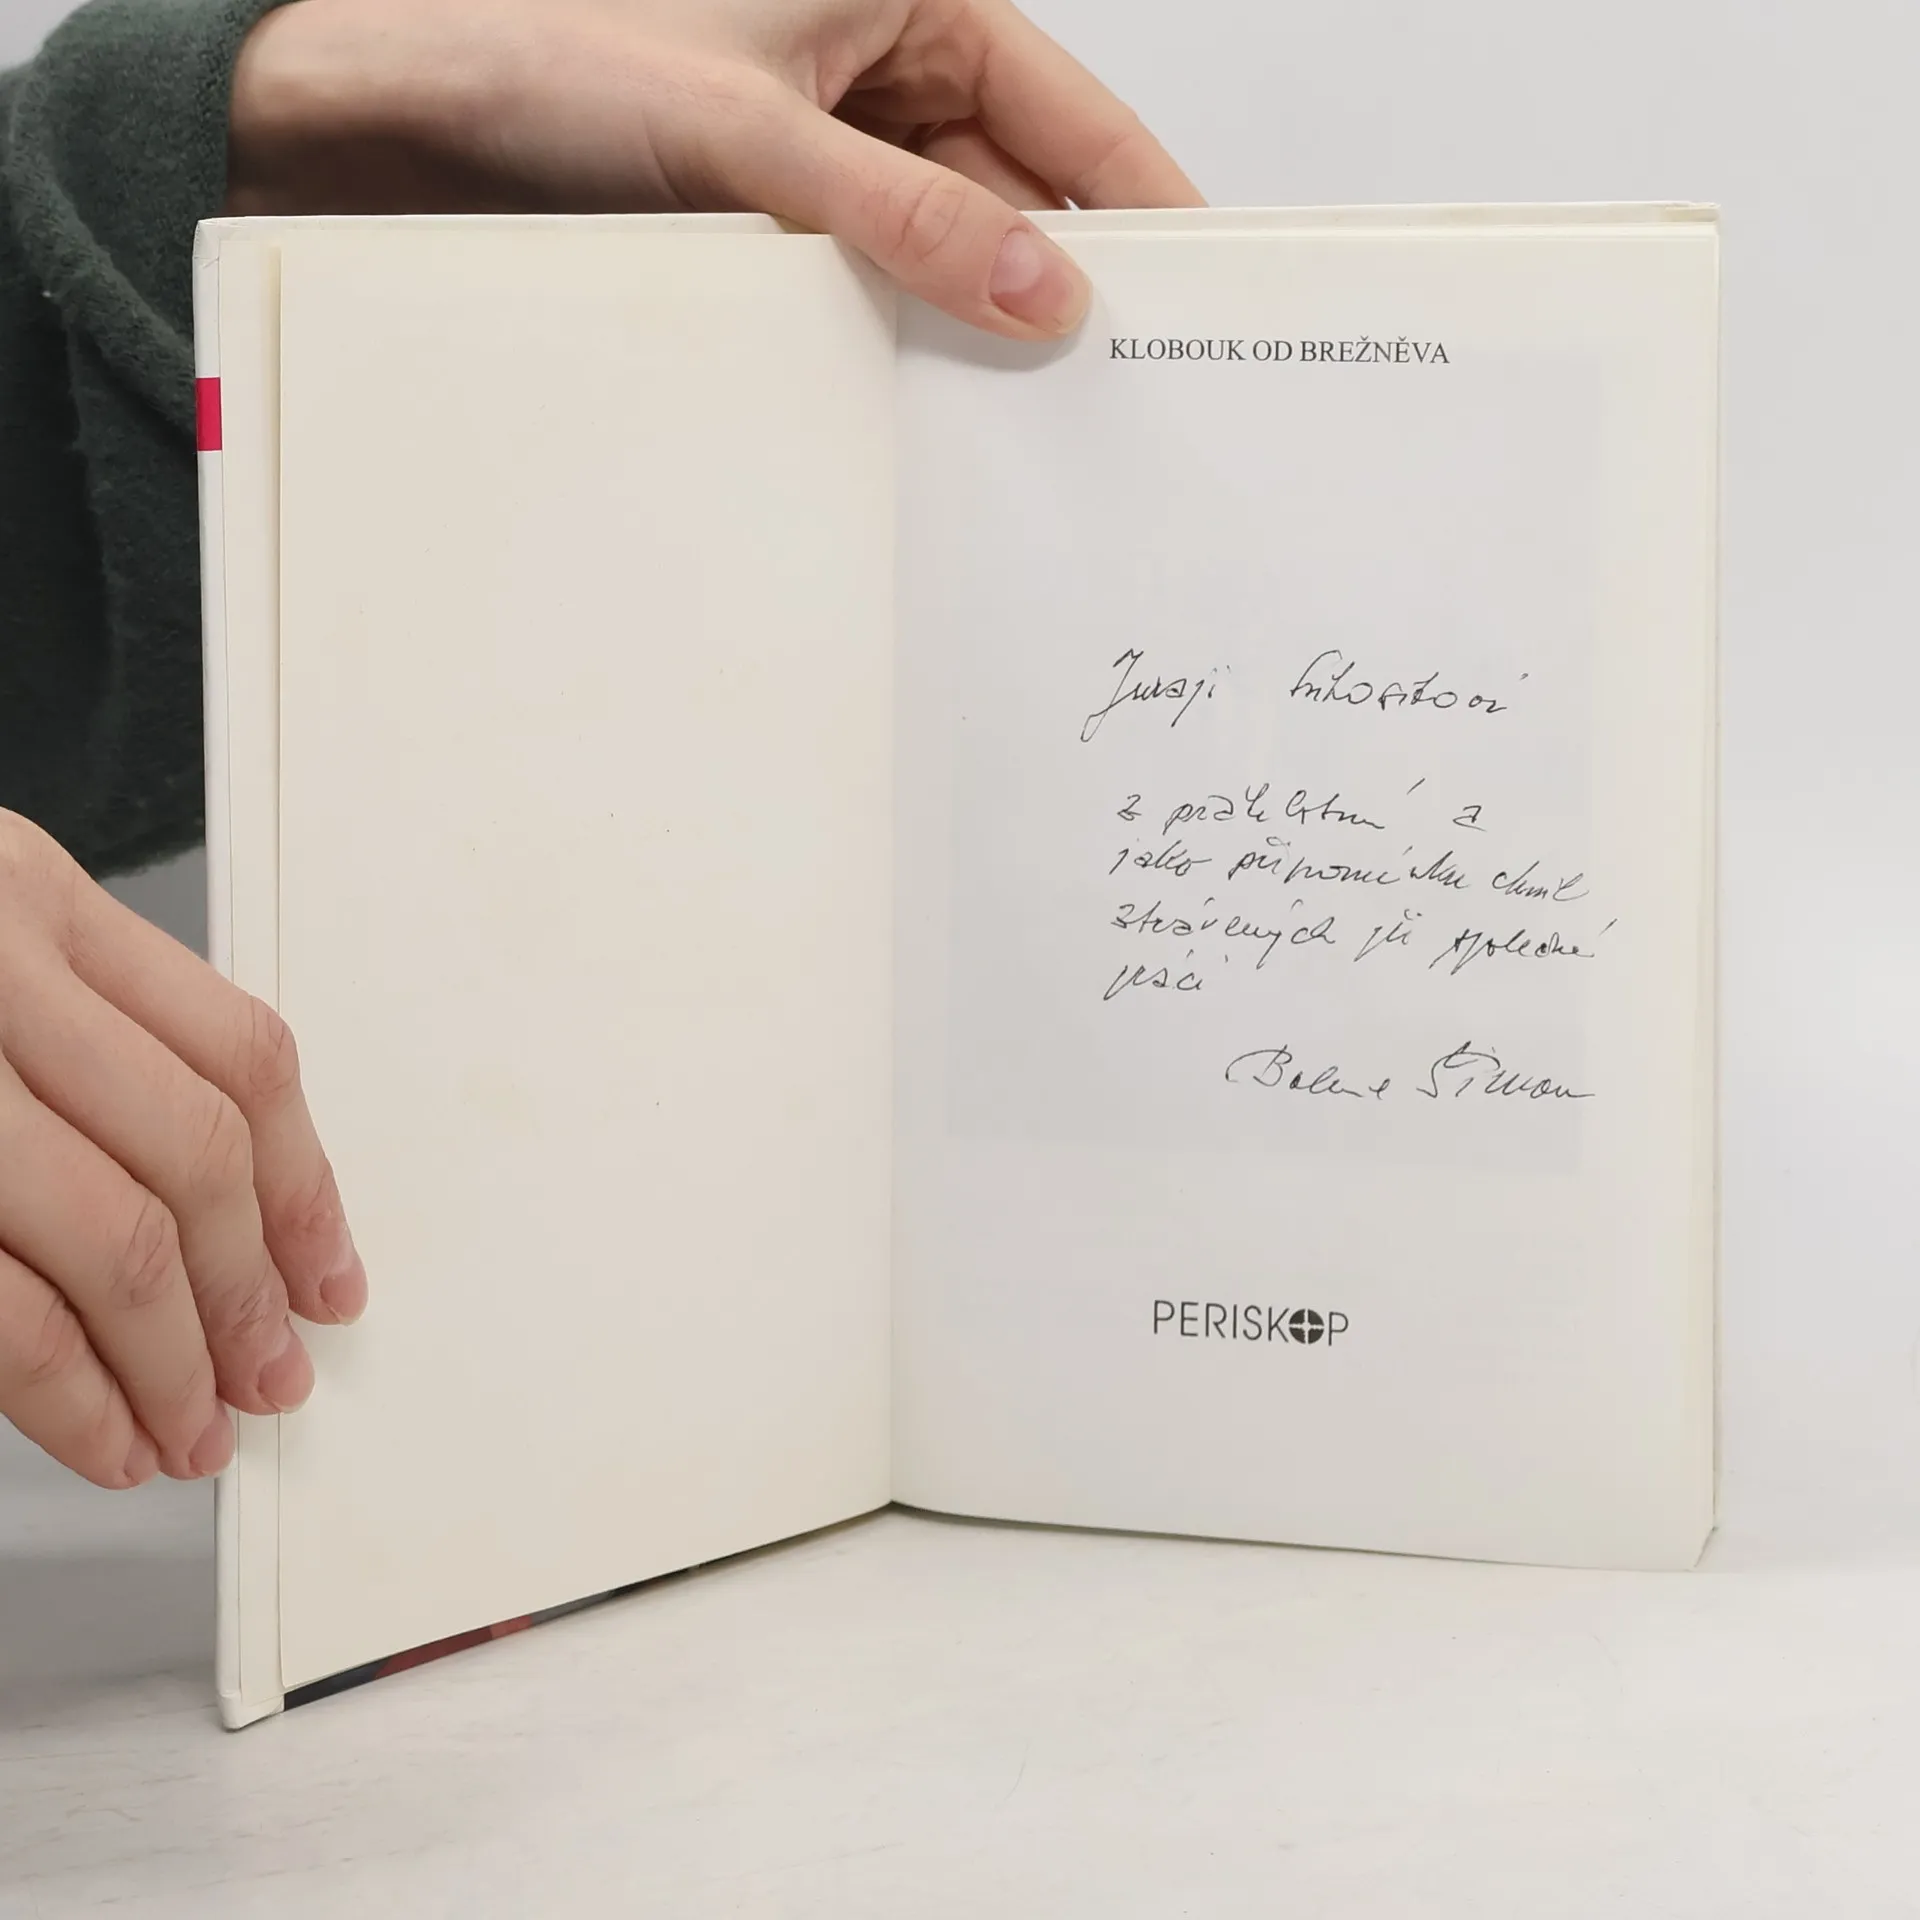 KLOBOUK OD BREŽNĚVA
Juraji
z přátelství a
jako připomínku chvil
strávených při společné
práci
Bohumil Šimon
PERISKOP